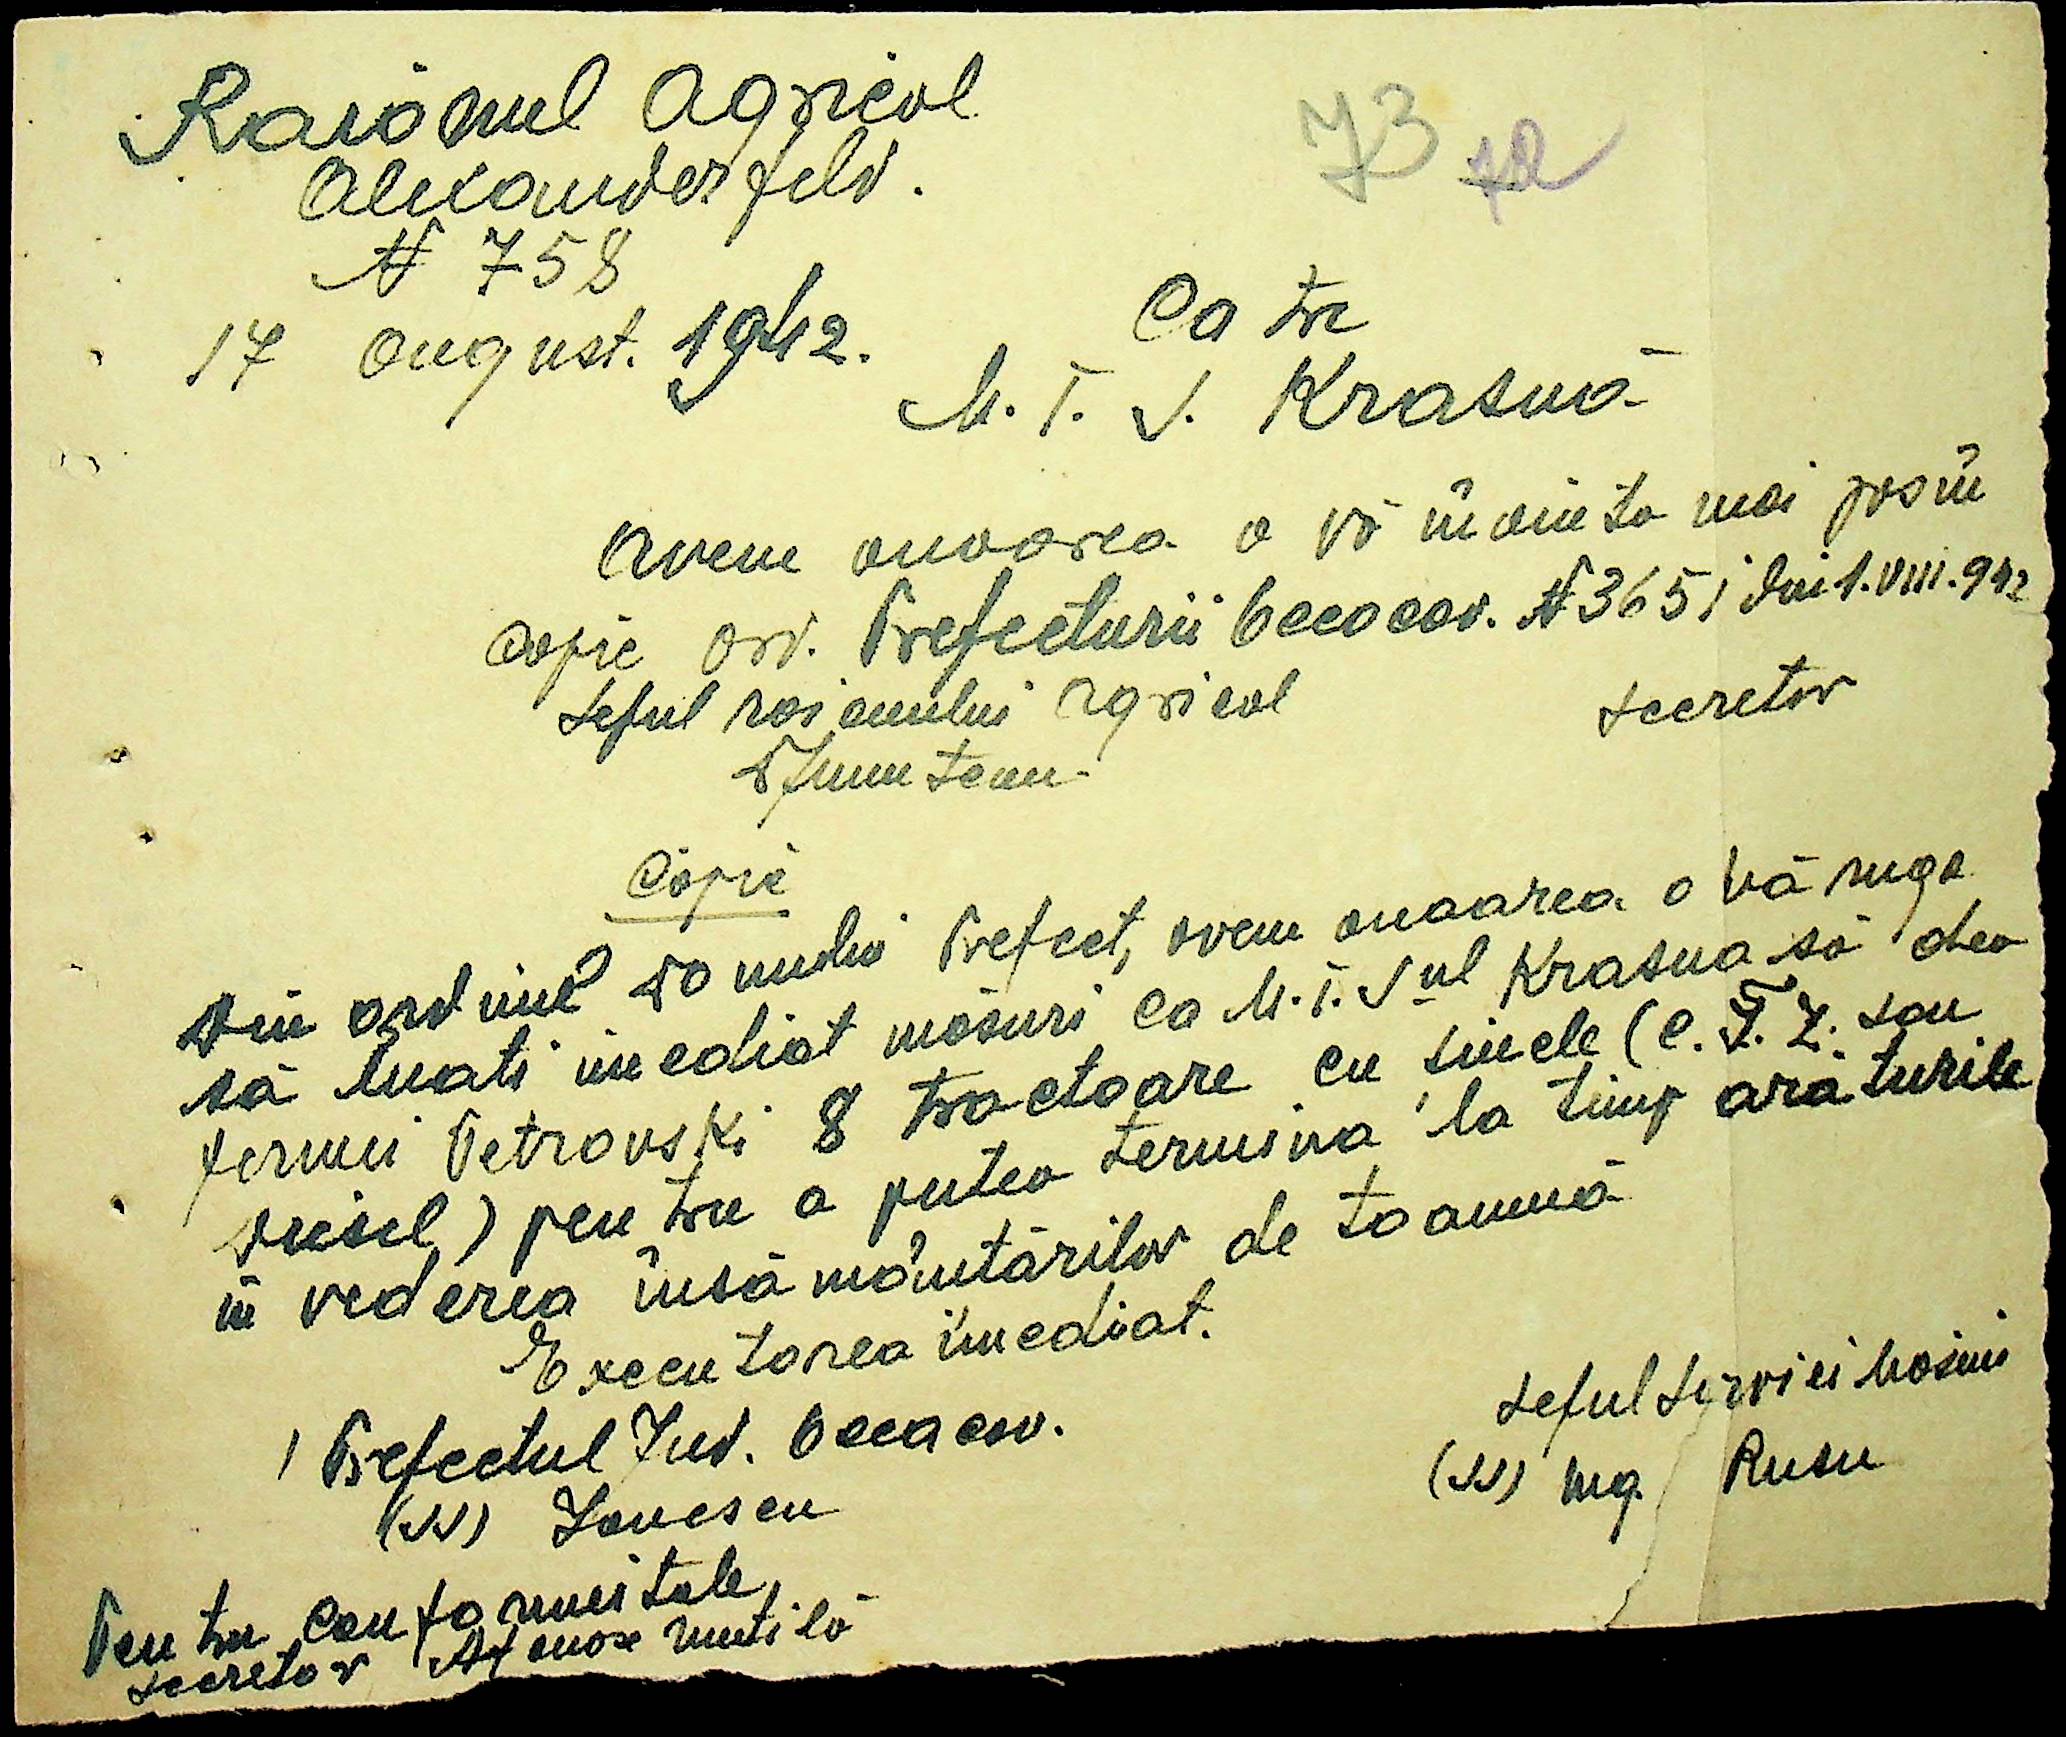 Raionul Agricol
Alexanderfeld.
N 758
17 August. 1942.
73 72
Catre
M. T. S. Krasnă
Avem onoarea a vă inainta mai jos in
copie ord. Prefecturii Oceacov. N 3651 din 1.VIII.942
seful raionului Agricol
secretar
Copie
Din ordinul Domnului Prefect, avem onoarea a vă ruga
să luati imediat măsuri ca M.T.S ul Krasna să dea
fermei Petrovski 8 tractoare cu sinele (C.T.Z. sau
Diesel) pentru a putea termina la timp arăturile
in vederea însămânțărilor de toamnă
Executarea imediat.
Prefectul Jud. Oceacov.
seful Servicii Masini
(ss) Ionescu
(ss) Ing. Rusu
Pentru conformitate
secretar